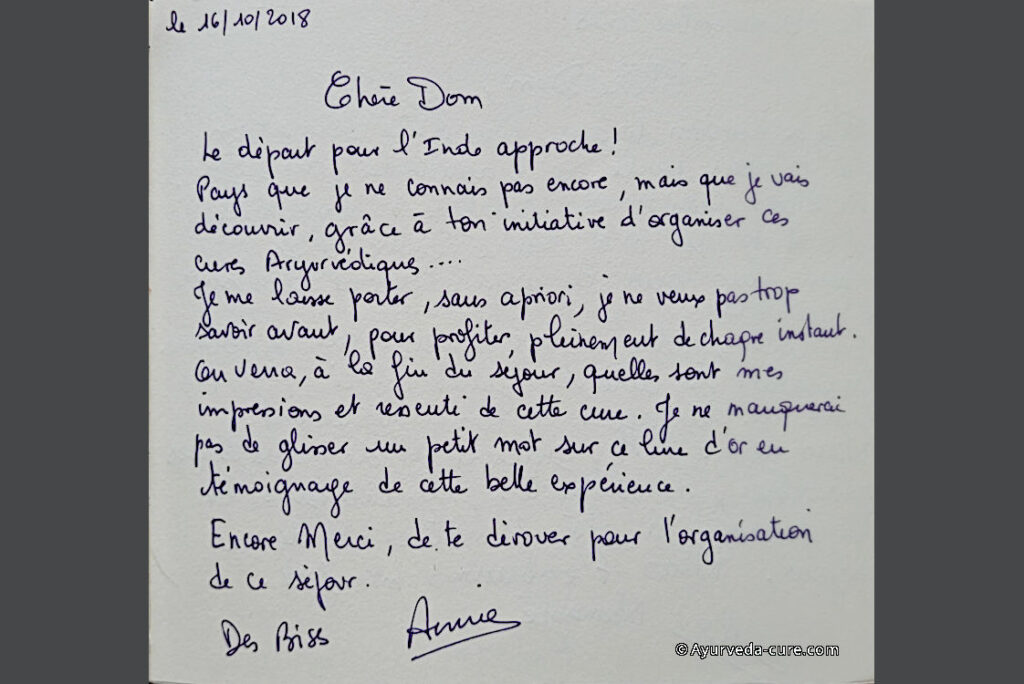 le 16/10/2018
Chère Dom
Le départ pour l'Inde approche !
Pays que je ne connais pas encore, mais que je vais
découvrir, grâce à ton initiative d'organiser ces
cures Aryurvédiques ....
Je me laisse porter, sans apriori, je ne veux pas trop
savoir avant, pour profiter, pleinement de chaque instant.
On verra, à la fin du séjour, quelles sont mes
impressions et ressenti de cette cure. Je ne manquerai
pas de glisser un petit mot sur ce livre d'or en
témoignage de cette belle expérience.
Encore Merci, de te dévouer pour l'organisation
de ce séjour.
Des Biss Annie
©Ayurveda-cure.com